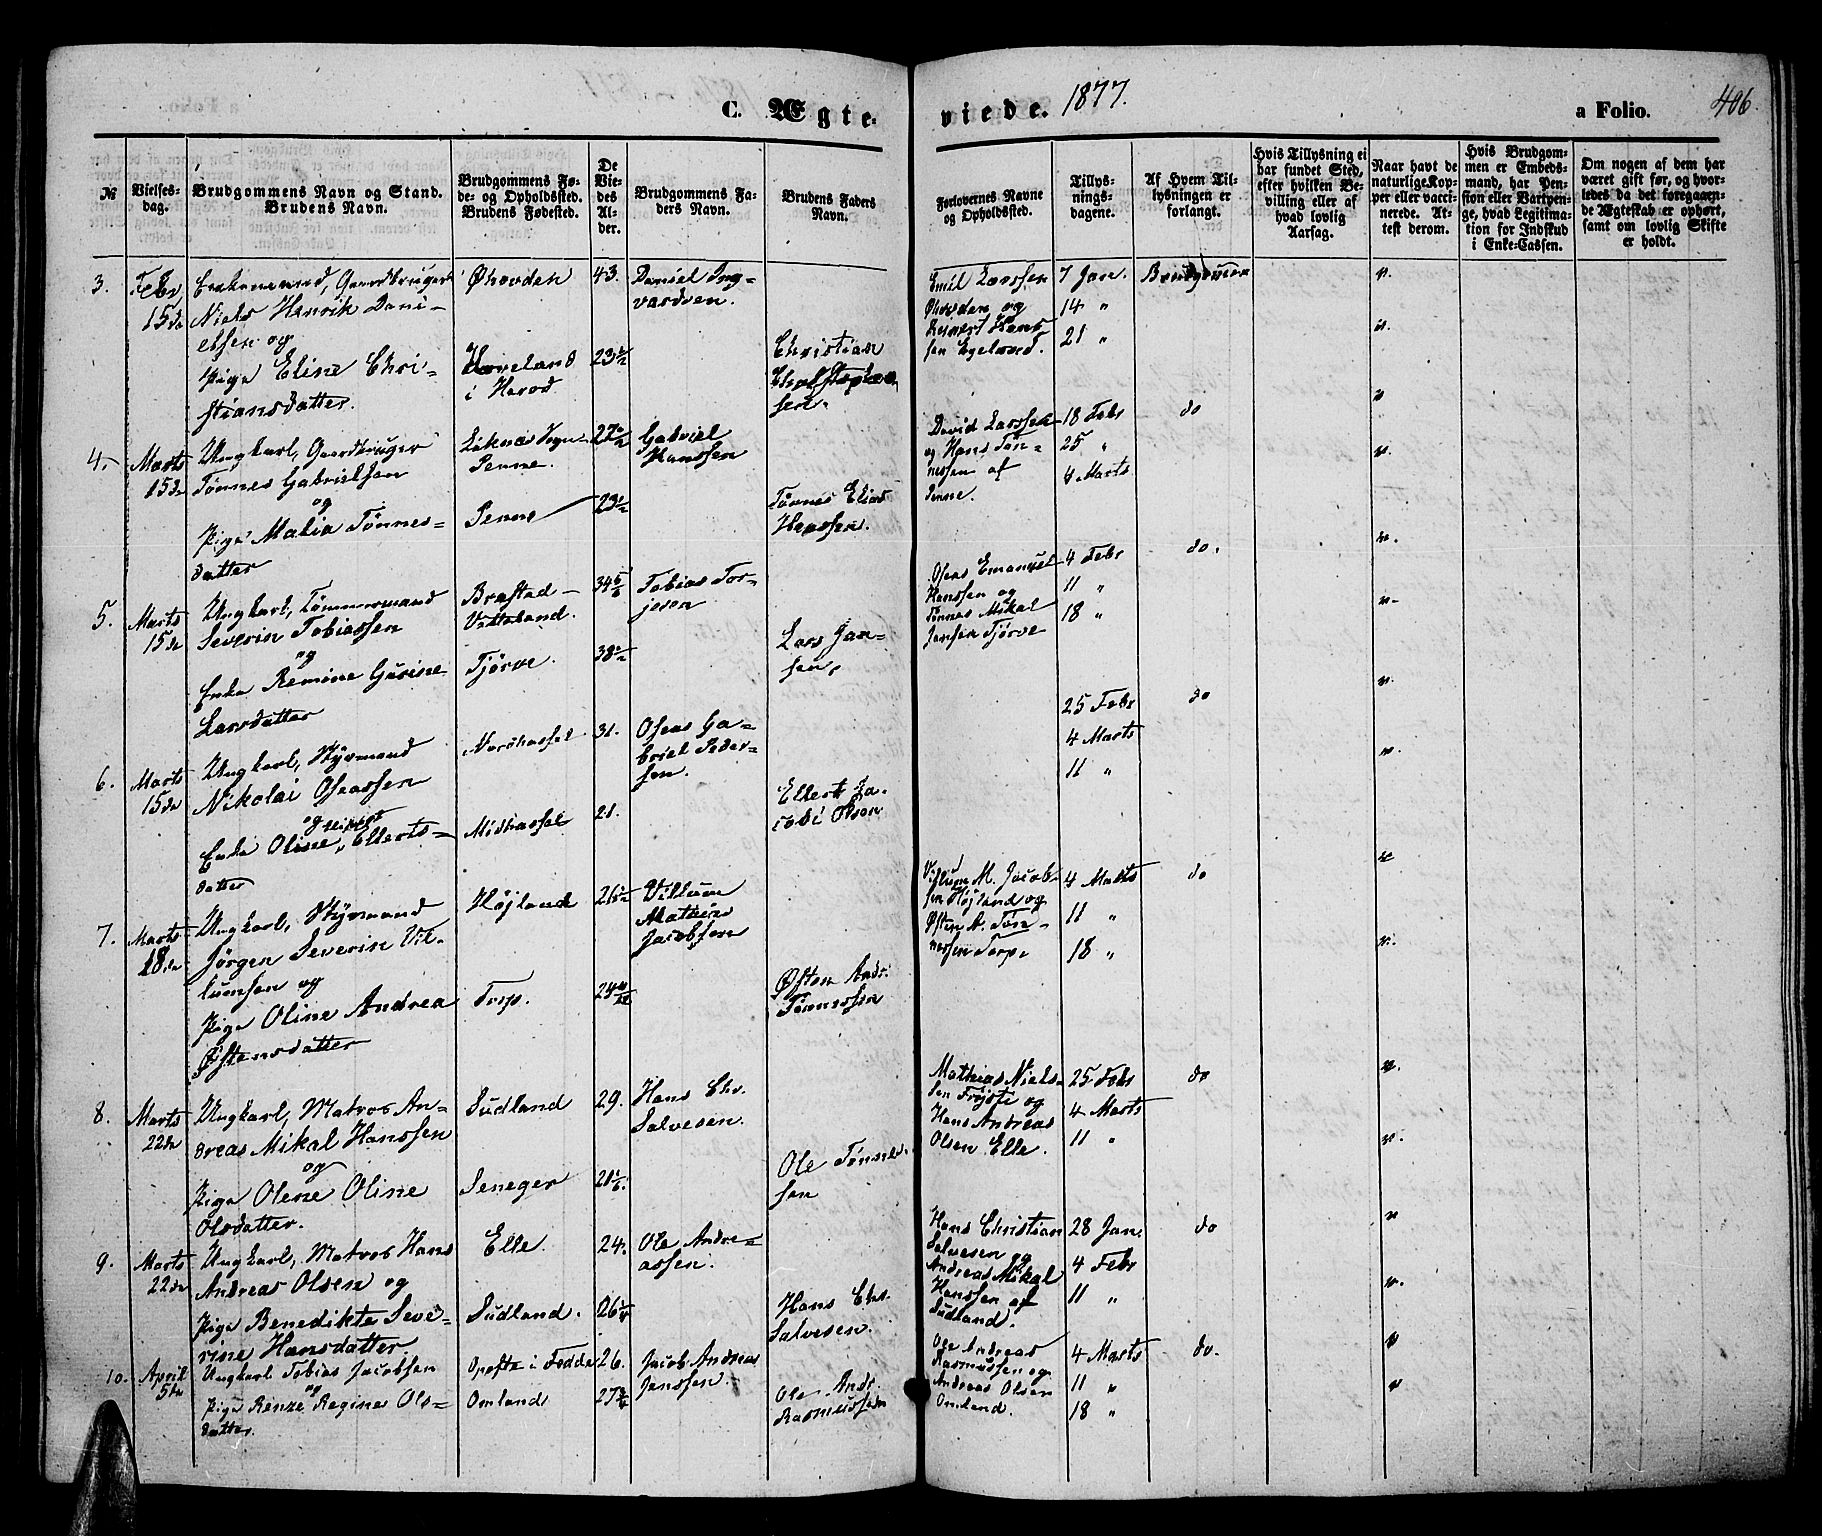 C. Ægte-
viede. 1877.
a Folio.
406.
№
Vielses-
dag.
Brudgommens Navn og Stand.
Brudens Navn.
Brudgommens Fø-
de- og Opholdssted.
Brudens Fødested.
De
Vie-
des
Al-
der.
Brudgommens Fa-
ders Navn.
Brudens Faders
Navn.
Forlovernes Navne
og Opholdssted.
Tillys-
nings-
dagene.
Af Hvem Til-
lysningen er
forlangt.
Hvis Tillysning ei
har fundet Sted,
efter hvilken Be-
villing eller af
hvad lovlig
Aarsag.
Naar havt de
naturlige Kop-
per eller vacci-
nerede. At-
test derom.
Hvis Brudgom-
men er Embeds-
mand, har Pen-
sion eller Vartpen-
ge, hvad Legitima-
tion for Indskud
i Enke-Cassen.
Om nogen af dem har
været gift før, og hvor-
ledes da det foregaaen-
de Ægteskab er ophørt,
samt om lovlig Skifte
er holdt.
3.
Febr
15de
Enkemand, Gaardbruger
Niels Henrik Dani-
elsen og
Pige Eline Chri-
stiansdatter.
Øhovden
Haveland
i Herad
43.
23
Daniel Ing-
vardsen.
Christian
sen.
Emil Larssen
Øhovden og
Hans-
sen Egeland.
7 Jan.
14 "
21 "
Brudgommen
4.
Marts
15de
Ungkarl, Gaardbruger
Tønnes Gabrielsen
og
Pige Malia Tønnes-
datter
Liknæs Sogn-
Penne.
Penne
27
23½
Gabriel
Hanssen
Tønnes Elias
Hanssen.
David Larssen
og Hans Tøn-
nessen af
Penne.
18 Febr
25 "
4 Marts
do
5.
Marts
15de
Ungkarl, Tømmermand
Severin Tobiassen
og
Enke Remine Gurine
Larsdatter
Brastad-
Vatteland.
Tjørve.
34 5/6
38½
Tobias Tor-
jesen
Lars Jan-
sen.
Oseas Emanuel
Hanssen og
Tønnes Mikal
Jansen Tjørve
4 Febr
11 "
18 "
do.
6.
Marts
15de
Ungkarl, Styrmand
Nikolai Oseassen
og
Enke Oline, Ellerts-
datter
Nordhassel
Midhassel
31.
21.
Oseas Ga-
briel Peder-
sen.
Ellert Ja-
cobi Olsen
25 Febr
4 Marts
11 "
do
7.
Marts
18de
Ungkarl, Styrmand
Jørgen Severin Vil-
lumsen og
Pige Oline Andrea
Østensdatter
Højland
Torp.
26½
24
Villum
Mathias
Jacobsen
Østen Andr.
Tønnessen
Villum M. Jacob-
sen Højland og
Østen A. Tøn-
nessen Torp.
4 Marts
11 "
18 "
do
8.
Marts
22de
Ungkarl, Matros An-
dreas Mikal Hanssen
og
Pige Olene Oline
Olsdatter.
Sudland
Seneger
29.
21
Hans Chr.
Salvesen.
Ole Tønnes-
sen
Mathias Niels-
sen Frøjsti og
Hans Andreas
Olsen Elle.
25 Febr
4 Marts
11 "
do
9.
Marts
22de
Ungkarl, Matros Hans
Andreas Olsen og
Pige Benedikte Seve-
rine Hansdatter.
Elle.
Sudland.
24.
26¼
Ole Andre-
assen.
Hans Chr.
Salvesen.
Hans Christian
Salvesen og
Andreas Mikal
Hanssen af
Sudland.
28 Jan.
4 Febr
11 "
do
10.
April
5te
Ungkarl Tobias Jacobsen
og
Pige Renze Regine Ols-
datter.
Opofte i Fedde
Omland
26.
27¾
Jacob Andreas
Janssen.
Ole Andr.
Rasmussen
Ole Andreas
Rasmussen og
Andreas Olsen
Omland.
4 Marts
11 "
18 "
do.